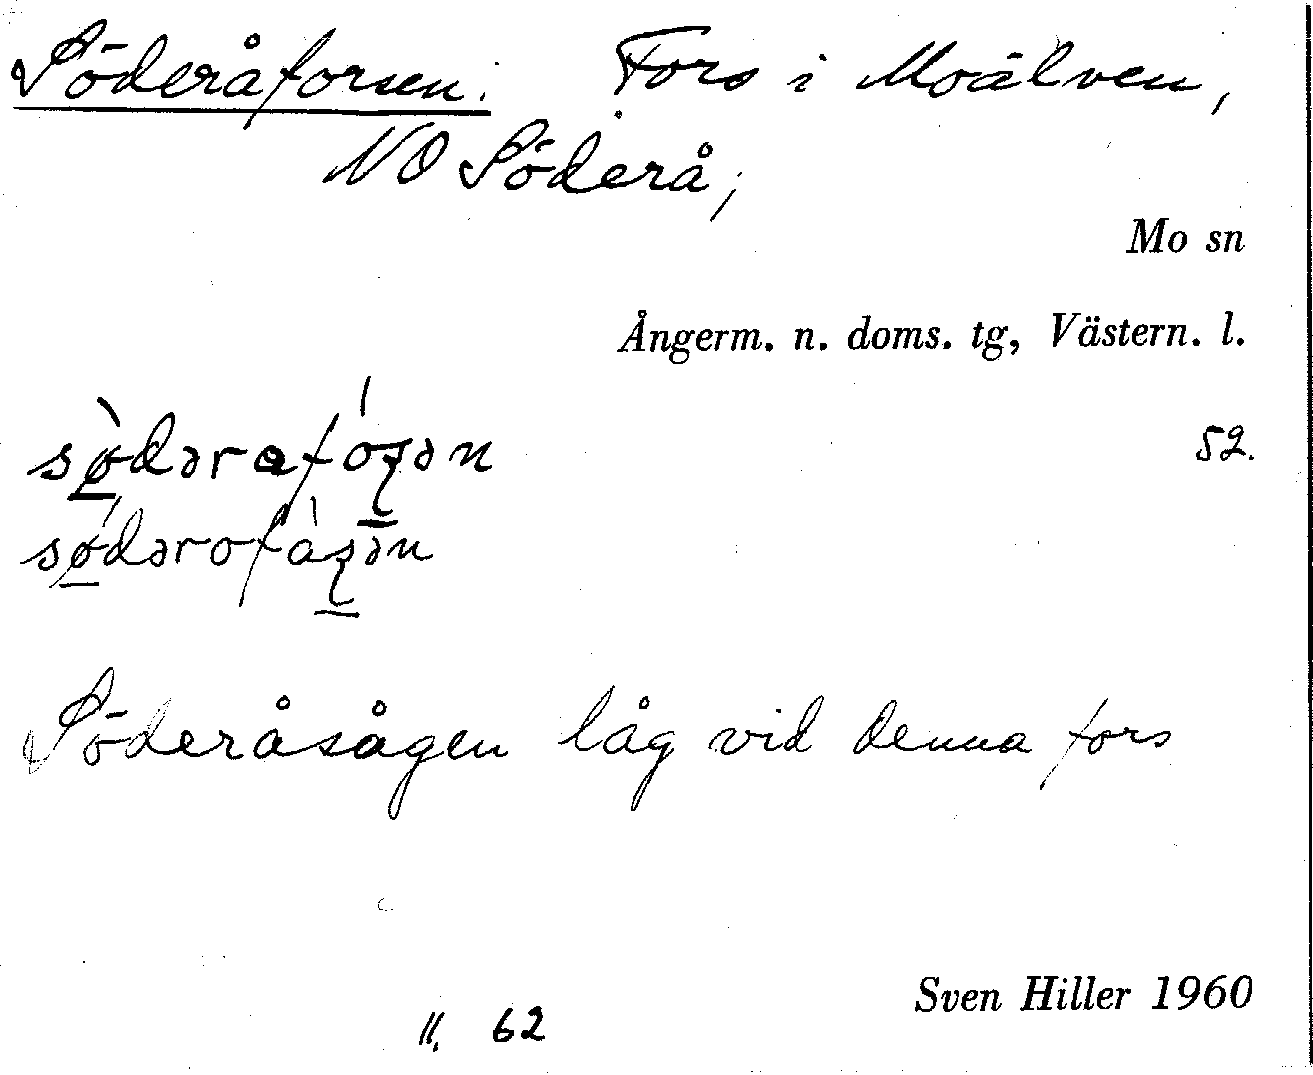 Söderåforsen. Fors i Moälven,
NO Söderå;
Mo sn
Ångerm. n. doms. tg, Västern. l.
52.
Söderåsågen låg vid denna fors
Sven Hiller 1960
II. 62